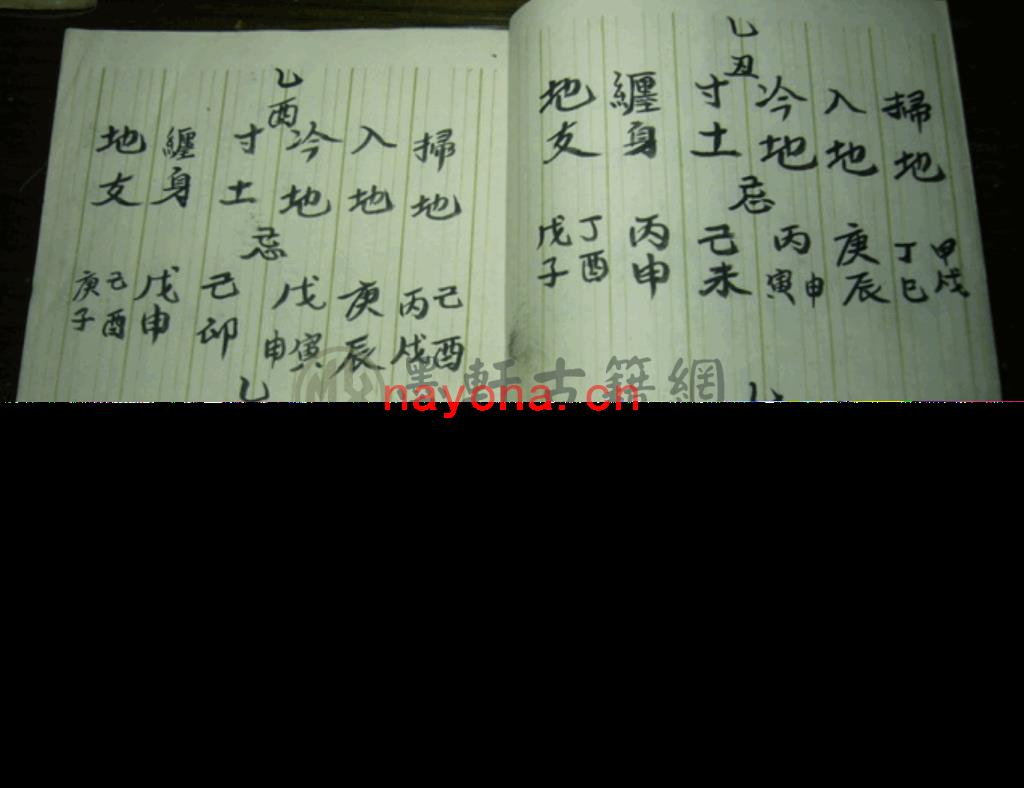 乙丑
掃地 入地 冷地 寸土 纏身 地支
忌
甲戌 丁巳 庚辰 丙寅申 己未 丙申 丁酉 戊子
乙
乙酉
掃地 入地 冷地 寸土 纏身 地支
忌
己酉 丙戌 庚辰 戊寅申 己卯 戊申 己酉 庚子
乙
墨軒古籍網
nayona.cn